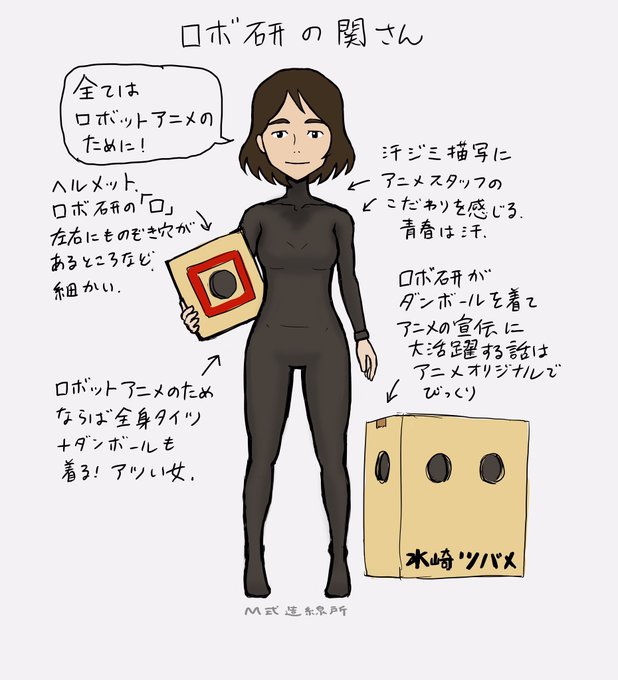 ロボ研の関さん
全ては
ロボットアニメの
ために!
ヘルメット、
ロボ研の「ロ」
左右にものぞき穴が
あるところなど、
細かい.
汗ジミ描写に
アニメスタッフの
こだわりを感じる.
青春は汗.
ロボ研が
ダンボールを着て
アニメの宣伝に
大活躍する話は
アニメオリジナルで
びっくり
ロボットアニメのため
ならば全身タイツ
+ダンボールも
着る!アツい女.
水崎ツバメ
M式造線所